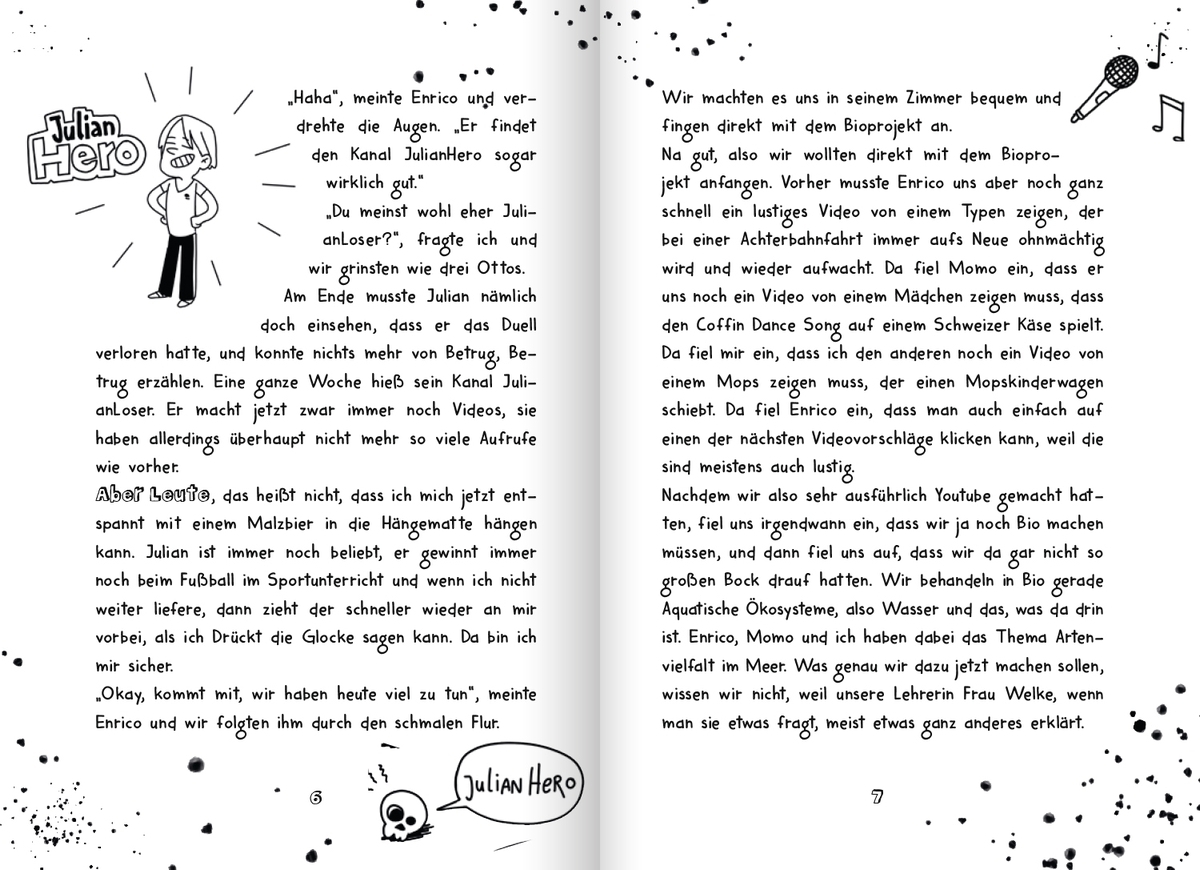 Julian
Hero
„Haha“, meinte Enrico und ver-
drehte die Augen. „Er findet
den Kanal JulianHero sogar
wirklich gut.“
„Du meinst wohl eher Juli-
anLoser?“, fragte ich und
wir grinsten wie drei Ottos.
Am Ende musste Julian nämlich
doch einsehen, dass er das Duell
verloren hatte, und konnte nichts mehr von Betrug, Be-
trug erzählen. Eine ganze Woche hieß sein Kanal Juli-
anLoser. Er macht jetzt zwar immer noch Videos, sie
haben allerdings überhaupt nicht mehr so viele Aufrufe
wie vorher.
Aber Leute, das heißt nicht, dass ich mich jetzt ent-
spannt mit einem Malzbier in die Hängematte hängen
kann. Julian ist immer noch beliebt, er gewinnt immer
noch beim Fußball im Sportunterricht und wenn ich nicht
weiter liefere, dann zieht der schneller wieder an mir
vorbei, als ich Drückt die Glocke sagen kann. Da bin ich
mir sicher.
„Okay, kommt mit, wir haben heute viel zu tun“, meinte
Enrico und wir folgten ihm durch den schmalen Flur.
6
Julian Hero
Wir machten es uns in seinem Zimmer bequem und
fingen direkt mit dem Bioprojekt an.
Na gut, also wir wollten direkt mit dem Biopro-
jekt anfangen. Vorher musste Enrico uns aber noch ganz
schnell ein lustiges Video von einem Typen zeigen, der
bei einer Achterbahnfahrt immer aufs Neue ohnmächtig
wird und wieder aufwacht. Da fiel Momo ein, dass er
uns noch ein Video von einem Mädchen zeigen muss, dass
den Coffin Dance Song auf einem Schweizer Käse spielt.
Da fiel mir ein, dass ich den anderen noch ein Video von
einem Mops zeigen muss, der einen Mopskinderwagen
schiebt. Da fiel Enrico ein, dass man auch einfach auf
einen der nächsten Videovorschläge klicken kann, weil die
sind meistens auch lustig.
Nachdem wir also sehr ausführlich Youtube gemacht hat-
ten, fiel uns irgendwann ein, dass wir ja noch Bio machen
müssen, und dann fiel uns auf, dass wir da gar nicht so
großen Bock drauf hatten. Wir behandeln in Bio gerade
Aquatische Ökosysteme, also Wasser und das, was da drin
ist. Enrico, Momo und ich haben dabei das Thema Arten-
vielfalt im Meer. Was genau wir dazu jetzt machen sollen,
wissen wir nicht, weil unsere Lehrerin Frau Welke, wenn
man sie etwas fragt, meist etwas ganz anderes erklärt.
7